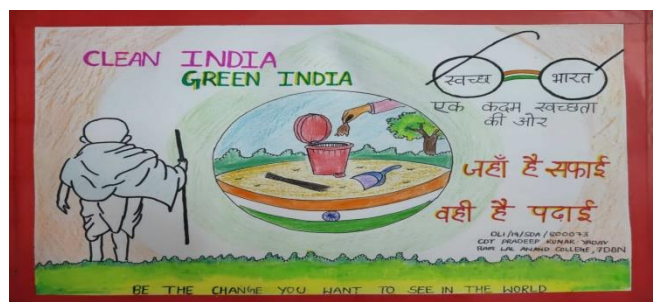 CLEAN INDIA
GREEN INDIA
स्वच्छ भारत
एक कदम स्वच्छता
की ओर
जहाँ है सफाई
वही है पढाई
CDT PRADEEP KUMAR YADAV
RAM LAL ANAND COLLEGE, 7DBN
BE THE CHANGE YOU WANT TO SEE IN THE WORLD